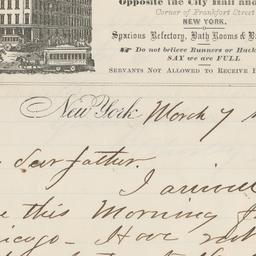 Opposite the City Hall and
Corner of Frankfort Street
NEW YORK.
Spacious Refectory, Bath Rooms & B
Do not believe Runners or Hack
SAY we are FULL
SERVANTS NOT ALLOWED TO RECEIVE
New York March 7
dear father.
I arrived
this Morning
Have